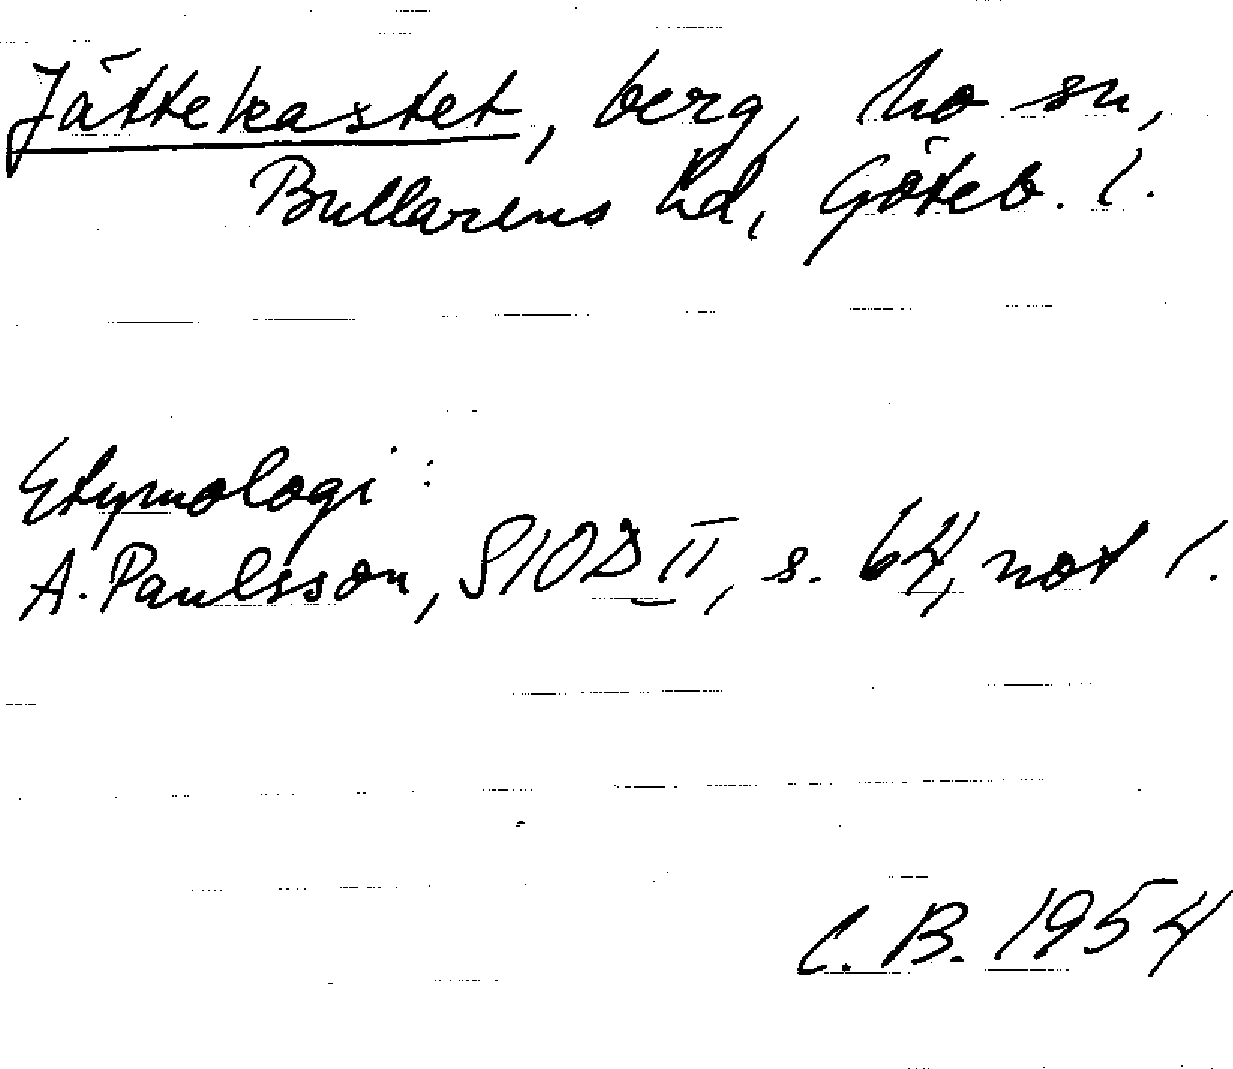 Jättekastet, berg, ho sn,
Bullarens hd, Göteb. l.
Etymologi:
A. Paulsson, SIOD II, s. 64, not 1.
C. B. 1954